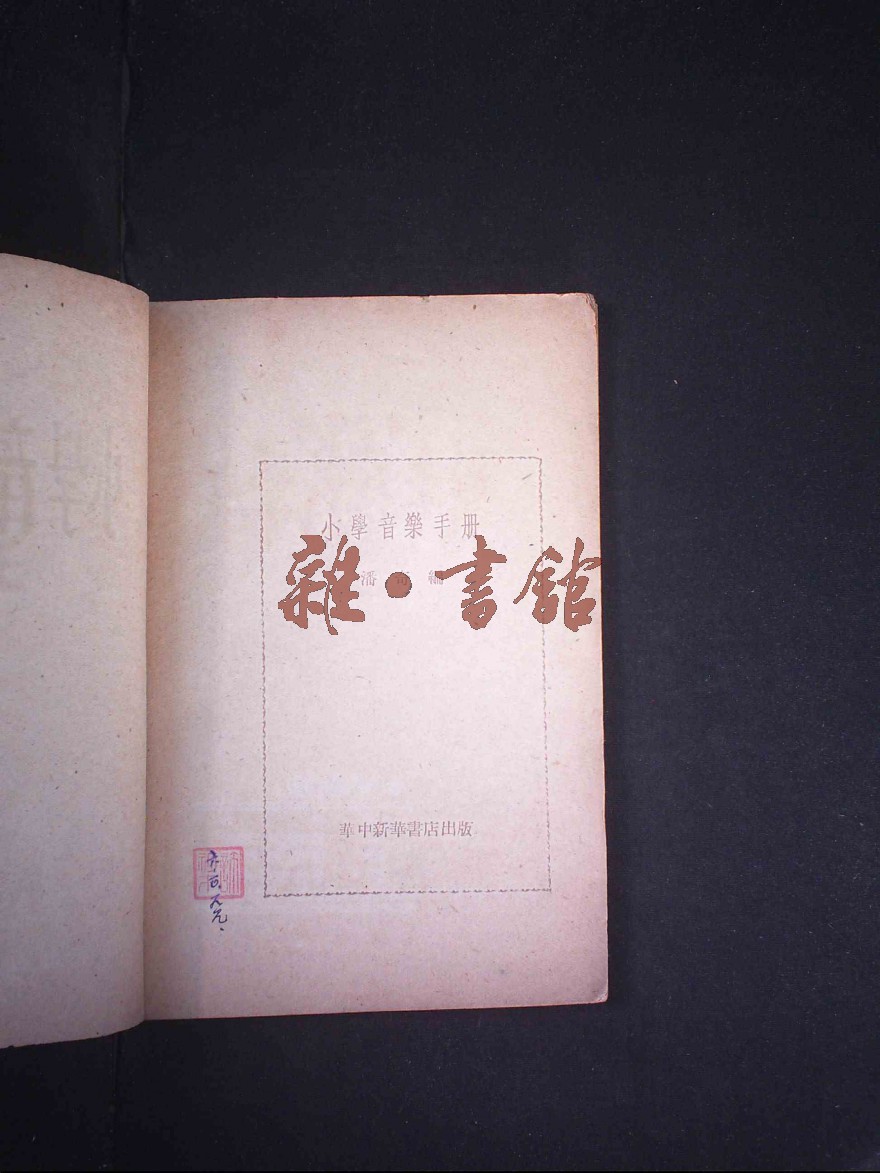 小學音樂手册
潘 編
雜·書舘
華中新華書店出版